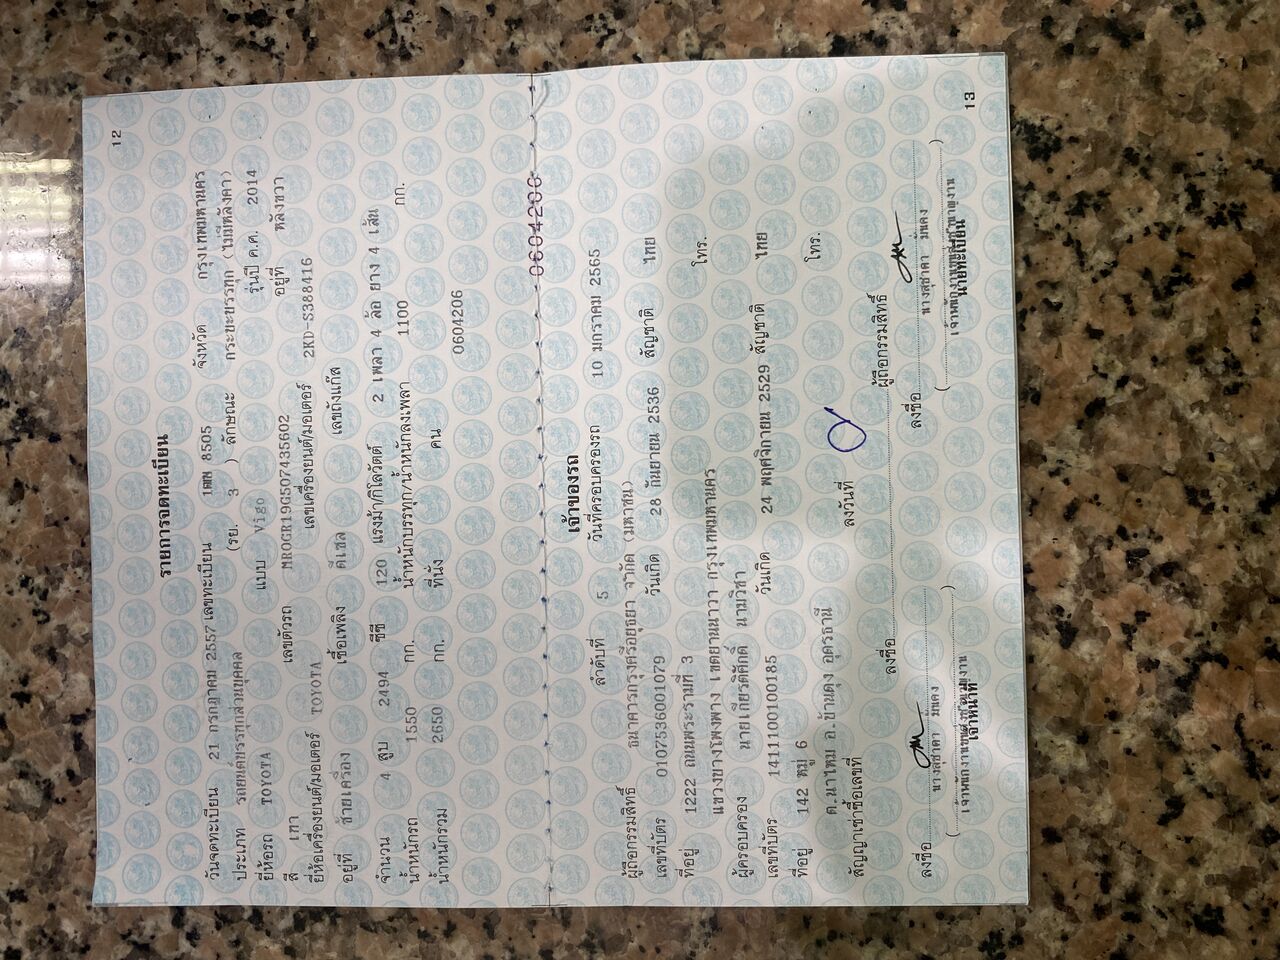 12
รายการจดทะเบียน
วันจดทะเบียน 21 กรกฎาคม 2557 เลขทะเบียน 1ฒฒ 8505 จังหวัด กรุงเทพมหานคร
ประเภท รถยนต์บรรทุกส่วนบุคคล (รย. 3 ) ลักษณะ กระบะบรรทุก (ไม่มีหลังคา)
ยี่ห้อรถ TOYOTA แบบ Vigo รุ่นปี ค.ศ. 2014
สี เทา เลขตัวรถ MR0GR19G507435602 อยู่ที่ หลังขวา
ยี่ห้อเครื่องยนต์/มอเตอร์ TOYOTA เลขเครื่องยนต์/มอเตอร์ 2KD-S388416
อยู่ที่ ซ้ายเครื่อง เชื้อเพลิง ดีเซล เลขถังแก๊ส
จำนวน 4 สูบ 2494 ซีซี 120 แรงม้า/กิโลวัตต์ 2 เพลา 4 ล้อ ยาง 4 เส้น
น้ำหนักรถ 1550 กก. น้ำหนักบรรทุก/น้ำหนักลงเพลา 1100 กก.
น้ำหนักรวม 2650 กก. ที่นั่ง คน 0604206
0604206
เจ้าของรถ
ลำดับที่ 5 วันที่ครอบครองรถ 10 มกราคม 2565
ผู้ถือกรรมสิทธิ์ ธนาคารกรุงศรีอยุธยา จำกัด (มหาชน)
เลขที่บัตร 0107536001079 วันเกิด 28 กันยายน 2536 สัญชาติ ไทย
ที่อยู่ 1222 ถนนพระรามที่ 3 โทร.
แขวงบางโพงพาง เขตยานนาวา กรุงเทพมหานคร
ผู้ครอบครอง นายเกียรติศักดิ์ นามวิชา
เลขที่บัตร 1411100100185 วันเกิด 24 พฤศจิกายน 2529 สัญชาติ ไทย
ที่อยู่ 142 หมู่ 6 โทร.
ต.นาไหม อ.บ้านดุง อุดรธานี
สัญญาเช่าซื้อเลขที่ ลงวันที่
ลงชื่อ ผู้ถือกรรมสิทธิ์
ลงชื่อ ลงชื่อ
นางสุชาดา มั่นคง ( ) นางสุชาดา มั่นคง ( )
เจ้าหน้าที่ นายทะเบียน
13